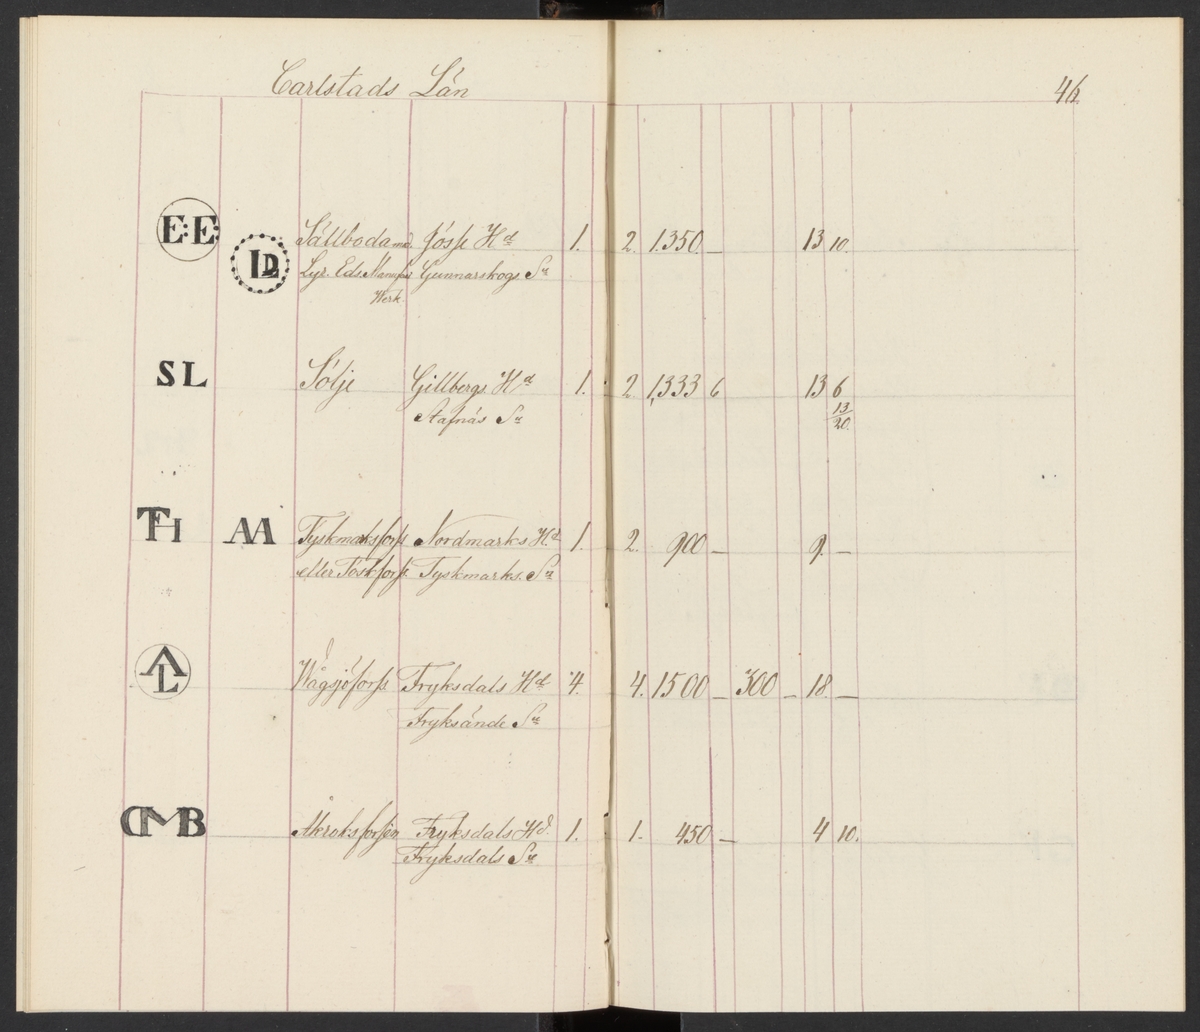 Carlstads Län
46.
E:E: Sällboda med Jösse Hd 1. 2. 1.350 — 13 10.
LD Lyr. Eds. Manufr Gunnarskogs Sn
Werk.
SL Sölje Gillbergs Hd 1. 2 1,333 6 13 6
Stafnäs Sn 13/20.
TH AA Tyskmarksforss Nordmarks Hd 1. 2. 900 — 9. —
eller Töskforss. Tyskmarks. Sn
AL Wågsjöforss Fryksdals Hd 4. 4. 1500 — 300 — 18. —
Fryksände Sn
CMB Åkroksforsen Fryksdals Hd. 1. 1. 450 — 4 10.
Fryksdals Sn